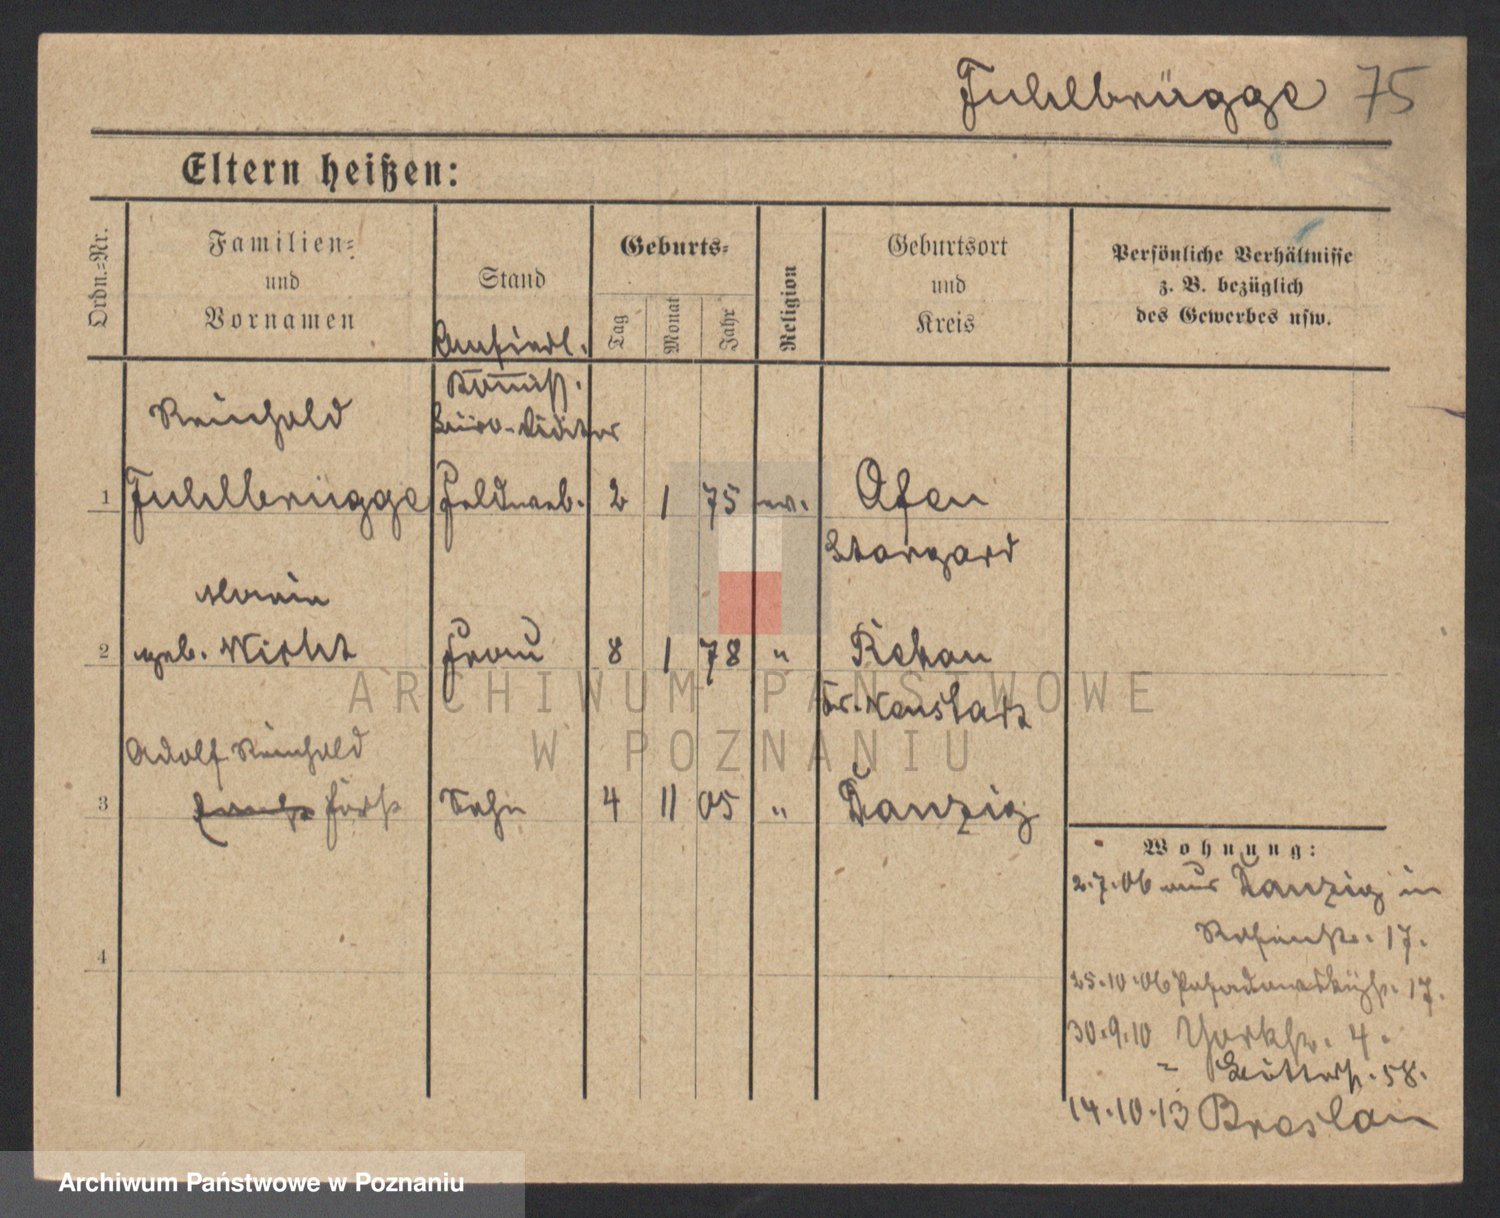 Fuhlbrügge 75
Eltern heißen:
Ordn.-Nr.
Familien-
und
Vornamen
Stand
Geburts-
Tag
Monat
Jahr
Religion
Geburtsort
und
Kreis
Persönliche Verhältnisse
z. B. bezüglich
des Gewerbes usw.
Ansiedl.
Kommiss.
Büro-Diätar
Reinhold
1 Fuhlbrügge Feldweb. 2 1 75 ev.
Stargard
Maria
2 geb. Wicht Frau 8 1 78 "
Kr. Neustadt
Adolf Reinhold
3 Sohn 4 11 05 " Danzig
4
Wohnung:
2.7.06 aus Danzig in
17.
25.10.06 17.
30.9.10 Yorkstr. 4.
58.
14.10.13 Breslau
ARCHIWUM PAŃSTWOWE
W POZNANIU
Archiwum Państwowe w Poznaniu